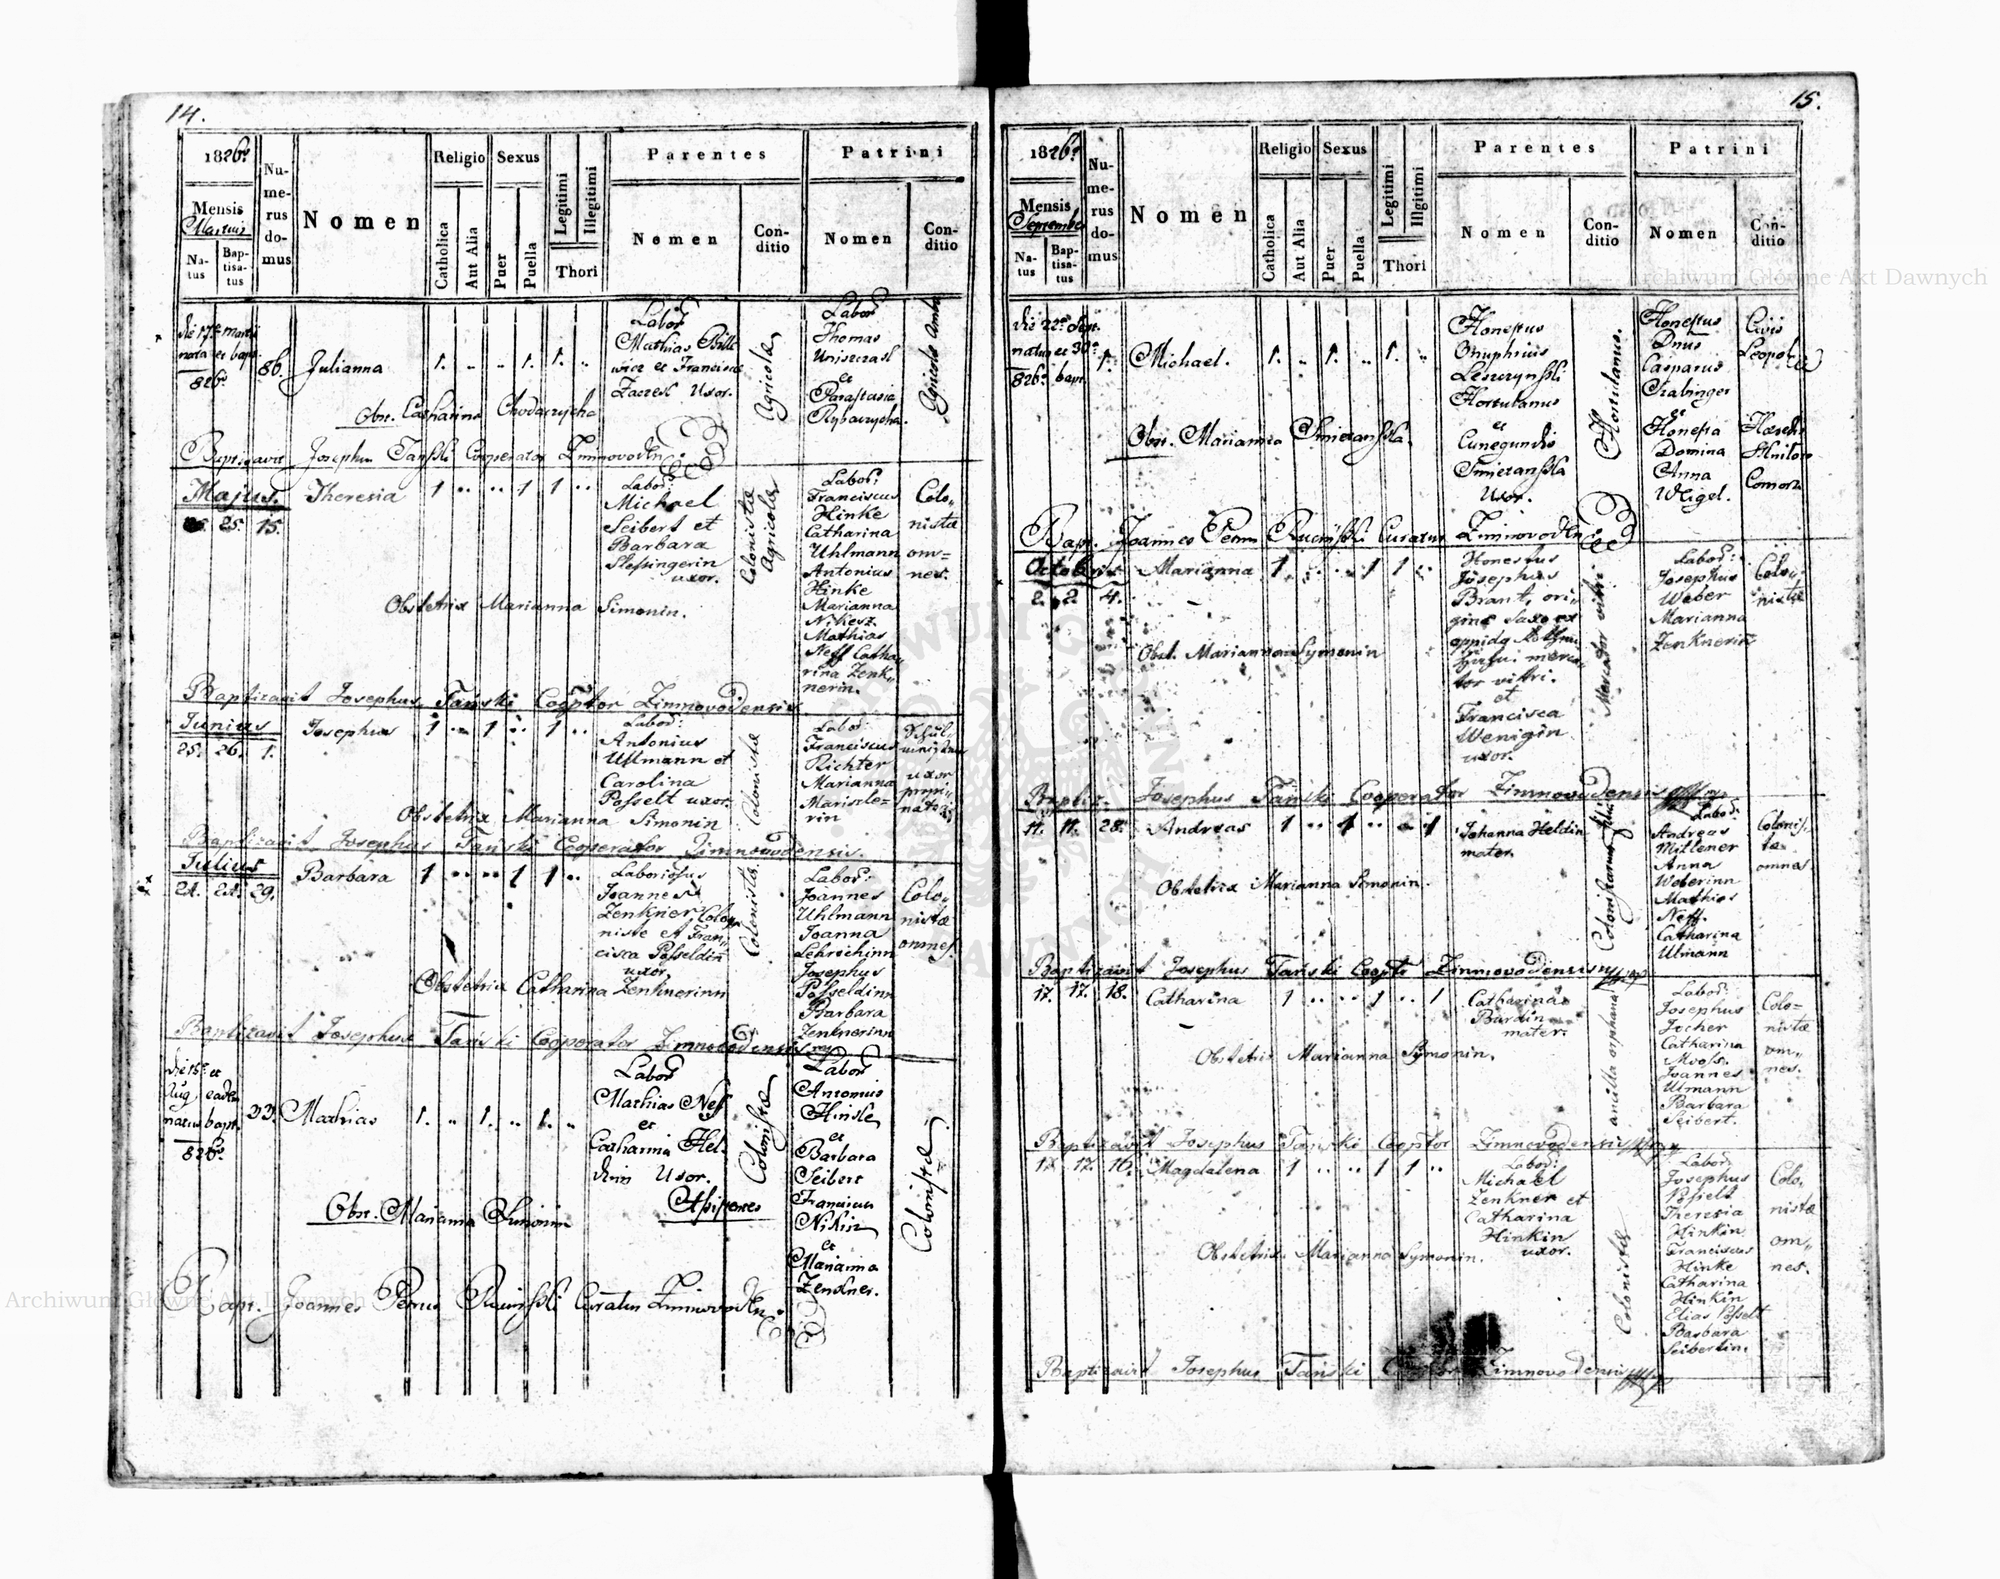 14.
1826.
Mensis
Martius
Na-
tus
Bap-
tisa-
tus
Nu-
me-
rus
do-
mus
Nomen
Religio
Catholica
Aut Alia
Sexus
Puer
Puella
Legitimi
Illegitimi
Thori
Parentes
Nomen
Con-
ditio
Patrini
Nomen
Con-
ditio
die 17
nata et bapt.
826
86.
Julianna
1. " " 1. 1. "
Labor
Mathias
et Francisca
Uxor.
Agricolæ
Labor
Thomas
et
Parastasia
Rybaczycha.
Agricolæ Ambo
Obst. Catharina Chodaczycha
Baptizavit Josephus Tański Cooperator Zimnovodens
Majus.
25. 15.
Theresia
1 " " 1 1 "
Labor:
Michael
Seibert et
Barbara
Slessingerin
uxor.
Colonistæ
Agricolæ
Labor:
Franciscus
Hinke
Catharina
Uhlmann
Antonius
Hinke
Marianna
Nikesz
Mathias
Neff Catha„
rina Zenk„
nerin.
Colo„
nistæ
om=
nes.
Obstetrix Marianna Simonin.
Baptizavit Josephus Tański Cooptor Zimnovodensis
Junius
25. 26. 1.
Josephus
1 " 1 " 1 "
Labor:
Antonius
Ullmann et
Carolina
Posselt uxor.
Colonistæ
Labor:
Franciscus
Richter
Marianna
Mariszle=
rin
uxor
Obstetrix Marianna Simonin
Baptizavit Josephus Tański Cooperator Zimnovodensis.
Julius
24. 24. 29.
Barbara
1 " " 1 1 "
Laboriosus
Joannes
Zenkner Colo„
niste et Fran„
cisca Posseldin
uxor.
Colonistæ
Labor:
Joannes
Uhlmann
Joanna
Lehrichinn
Josephus
Posseldinn
Barbara
Zenknerinn
Colo„
nistæ
omnes.
Obstetrix Catharina Zenknerinn
Baptizavit Josephus Tański Cooperator Zimnovodensis
die 15 et
Aug. eadem
natus bapt.
826
33.
Mathias
1. " 1. " 1. "
Labor
Mathias Neff
et
Catharina Hel-
Uxor.
Colonistæ
Labor
Antonius
Hinkle
et
Barbara
Seibert
Franciscus
Nikisz
et
Marianna
Zenkner.
Colonistæ
Assistentes
Obst. Marianna Simonin
Bapt. Joannes Petrus Ruciński Curatus Zimnovodens
15.
1826.
Mensis
September
Na-
tus
Bap-
tisa-
tus
Nu-
me-
rus
do-
mus
Nomen
Religio
Catholica
Aut Alia
Sexus
Puer
Puella
Legitimi
Illgitimi
Thori
Parentes
Nomen
Con-
ditio
Patrini
Nomen
Con-
ditio
die 22 Sept.
natus et 30
826 bapt.
1.
Michael.
1. " 1. " 1. "
Honestus
Onuphrius
Leszczyński
Hortulanus
et
Cunegundis
Smietańska
Uxor.
Hortulanus.
Honestus
Dnus
Casparus
Trabinger
et
Honesta
Domina
Anna
Weigel.
Civis
Leopol
Obst. Marianna Smietańska
Bapt. Joannes Petrus Ruciński Curatus Zimnovodens
Octobris
2. 2. 4.
Marianna
1 " " 1 1 "
Honestus
Josephus
Brant, ori„
gine Saxo ex
oppido
tor vitri.
et
Francisca
Wenigin
uxor.
Mercator vitri
Labor:
Josephus
Weber
Marianna
Zenknerin
Colo„
nistæ
Obst. Marianna Symonin
Baptiz. Josephus Tański Cooperator Zimnovodensis
11. 11. 28.
Andreas
1 " 1 " " 1
Johanna Heldin
mater.
Labor:
Andreas
Mitlener
Anna
Weberinn
Mathias
Neff.
Catharina
Ulmann
Colonis„
tæ
omnes.
Obstetrix Marianna Simonin.
Baptizavit Josephus Tański Coopt Zimnovodensis
17. 17. 18.
Catharina
1 " " 1 " 1
Catharina
Bardin
mater.
ancilla orphana
Labor:
Josephus
Jocher
Catharina
Moos.
Joannes
Ulmann
Barbara
Seibert.
Colo=
nistæ
om„
nes.
Obstetrix Marianna Symonin.
Baptizavit Josephus Tański Cooptor Zimnovodensis
17. 17. 16.
Magdalena
1 " " 1 1 "
Labor:
Michael
Zenkner et
Catharina
Hinkin
uxor.
Colonistæ
Labor:
Josephus
Posselt
Theresia
Hinkin
Franciscus
Hinke
Catharina
Hinkin
Elias Posselt
Barbara
Seibertin.
Colo„
nistæ
om„
nes.
Obstetrix Marianna Symonin.
Baptizavit Josephus Tański Cooptor Zimnovodensis
Archiwum Główne Akt Dawnych
Archiwum Główne Akt Dawnych